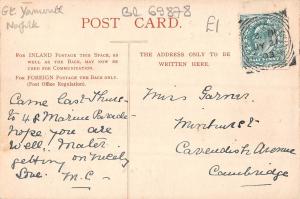 Gt Yarmouth
Norfolk
BR 69878
£1
POST CARD.
FOR INLAND POSTAGE THIS SPACE, AS
WELL AS THE BACK, MAY NOW BE
USED FOR COMMUNICATION.
FOR FOREIGN POSTAGE THE BACK ONLY.
(Post Office Regulation.)
THE ADDRESS ONLY TO BE
WRITTEN HERE.
Came last Thurs
to 48 Marine Parade
hope you are
well, Mater
getting on nicely
Love M.C—
Miss Garner
Minthurst
Cavendish Avenue
Cambridge